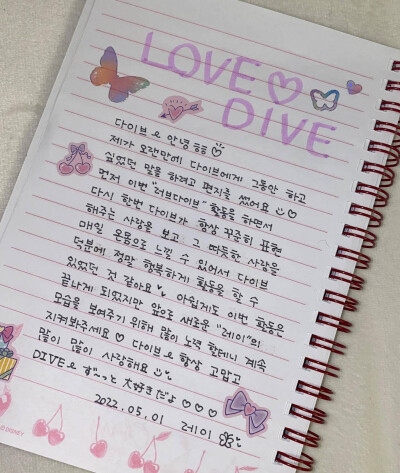 LOVE♡
DIVE
다이브 안녕ㅎㅎ
제가 오랜만에 다이브에게 그동안 하고
싶었던 말을 하려고 편지를 썼어요 ♡
먼저 이번 "러브다이브" 활동을 하면서
다시 한번 다이브가 항상 꾸준히 표현
해주는 사랑을 보고 그 따듯한 사랑을
매일 온몸으로 느낄 수 있어서 다이브
덕분에 정말 행복하게 활동을 할 수
있었던 것 같아요. 아쉽게도 이번 활동은
끝나게 되었지만 앞으로 새로운 "레이"의
모습을 보여주기 위해 많이 노력 할테니 계속
지켜봐주세요 ♡ 다이브 항상 고맙고
많이 많이 사랑해요
DIVE ず〜っと 大好きだよ ♡♡♡
2022.05.01 레이
DISNEY